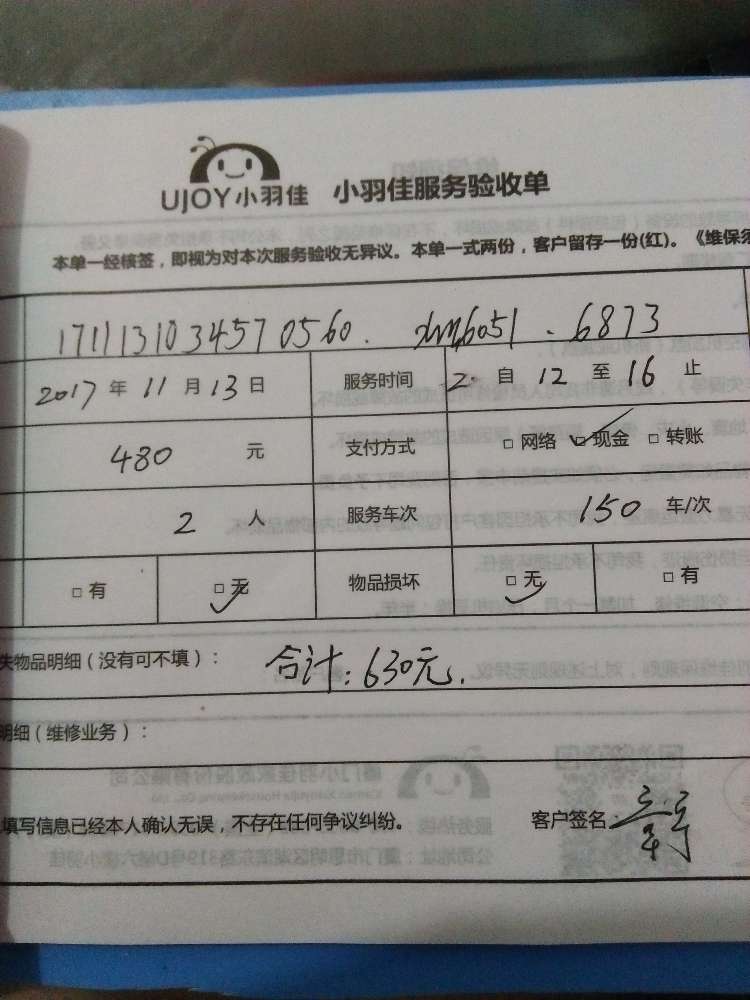 UJOY小羽佳 小羽佳服务验收单
本单一经核签，即视为对本次服务验收无异议。本单一式两份，客户留存一份(红)。《维保须
17111310345710560. xm6051 . 6873
2017年11月13日 服务时间 2. 自 12 至 16 止
480 元 支付方式 □ 网络 □ 现金 □ 转账
2 人 服务车次 150 车/次
□ 有 □ 无 物品损坏 □ 无 □ 有
失物品明细（没有可不填）： 合计：630元.
明细（维修业务）：
填写信息已经本人确认无误，不存在任何争议纠纷。 客户签名: